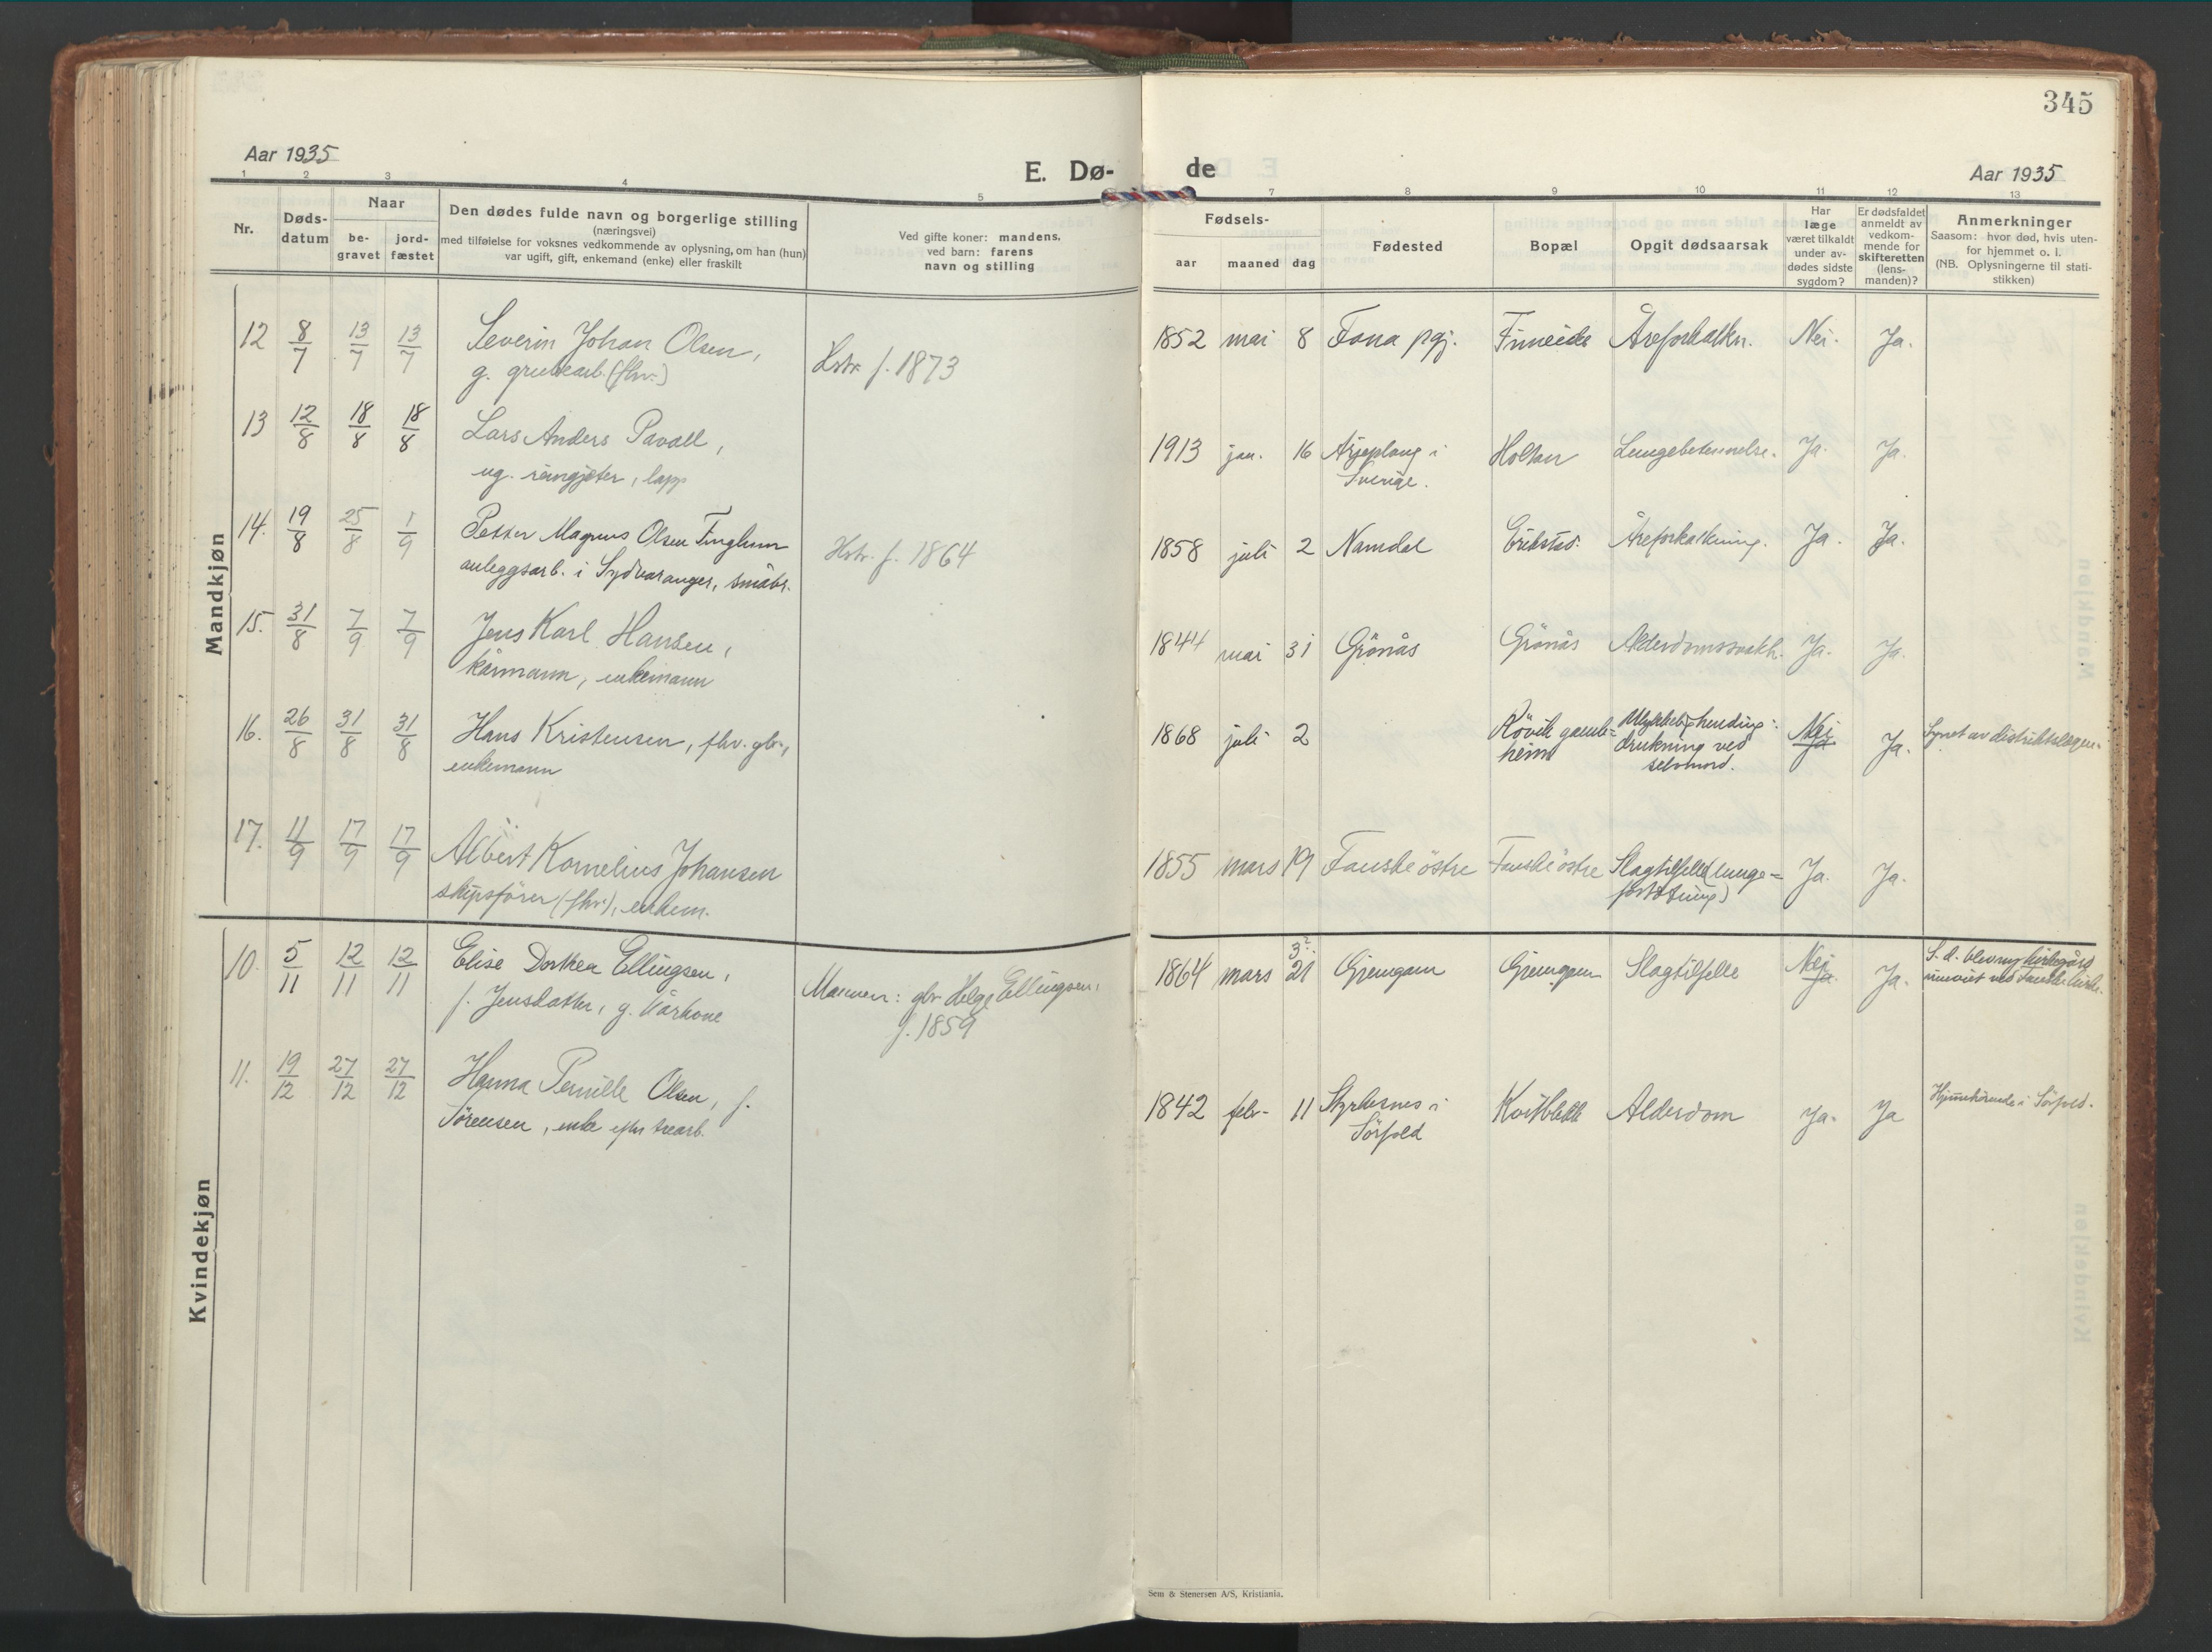 345
Aar 1935
E. Dø-
de
Aar 1935
1 2 3 4 5 7 8 9 10 11 12 13
Nr.
Døds-
datum
Naar
be-
gravet
jord-
fæstet
Den dødes fulde navn og borgerlige stilling
(næringsvei)
med tilføielse for voksnes vedkommende av oplysning, om han (hun)
var ugift, gift, enkemand (enke) eller fraskilt
Ved gifte koner: mandens.
ved barn: farens
navn og stilling
Fødsels-
aar maaned dag
Fødested
Bopæl
Opgit dødsaarsak
Har
læge
været tilkaldt
under av-
dødes sidste
sygdom?
Er dødsfaldet
anmeldt av
vedkom-
mende for
skifteretten
(lens-
manden)?
Anmerkninger
Saasom: hvor død, hvis uten-
for hjemmet o. l.
(NB. Oplysningerne til stati-
stikken)
Mandkjøn
12 8/7 13/7 13/7 Severin Johan Olsen,
g. grubearb. (fhv.)
Hstr. f. 1873
1852 mai 8 Fana pgj. Finneide Åreforkalkn. Nei. Ja.
13 12/8 18/8 18/8 Lars Anders Pavall,
ug. reingjeter, lapp
1913 jan. 16 Arjeplaug i
Sverige.
Holtan Lungebetennelse. Ja. Ja.
14. 19/8 25/8 1/9 Petter Magnus Olsen
anleggsarb. i Sydvaranger, småbr.
Hstr. f. 1864
1858 juli 2 Namdal Erikstad. Åreforkalkning. Ja. Ja.
15. 31/8 7/9 7/9 Jens Karl Hansen,
kårmann, enkemann
1844 mai 31 Grönås Grönås Alderdomssvakh. Ja. Ja.
16. 26/8 31/8 31/8 Hans Kristensen, fhv. gbr.,
enkemann
1868 juli 2 Rövik gamle=
heim
hending:
drukning ved
selvmord.
Nei
Ja
Ja.
Synet av distriktslegen.
17. 11/9 17/9 17/9 Albert Kornelius Johansen
skipsförer (fhv.), enkem.
1855 mars 19 Fauske östre Fauske östre Slagtilfelle (lunge=
Ja. Ja.
Kvindekjøn
10. 5/11 12/11 12/11 Elise Dorthea Ellingsen,
f. Jensdatter, g. kårkone
Mannen: gbr. Helge Ellingsen,
f. 1859
1864 mars 3?
21 Gjemgam Gjemgam Slagtilfelle Nei
Ja
Ja.
S. d. blev ny kirkegård
innviet ved Fauske kirke.
11. 19/12 27/12 27/12 Hanna Pernille Olsen, f.
Sörensen, enke efter trearb.
1842 febr. 11 Styrkesnes i
Sörfold
Kvitblikk Alderdom Ja. Ja
Hjemmehörende i Sörfold.
Sem & Stenersen A/S, Kristiania.